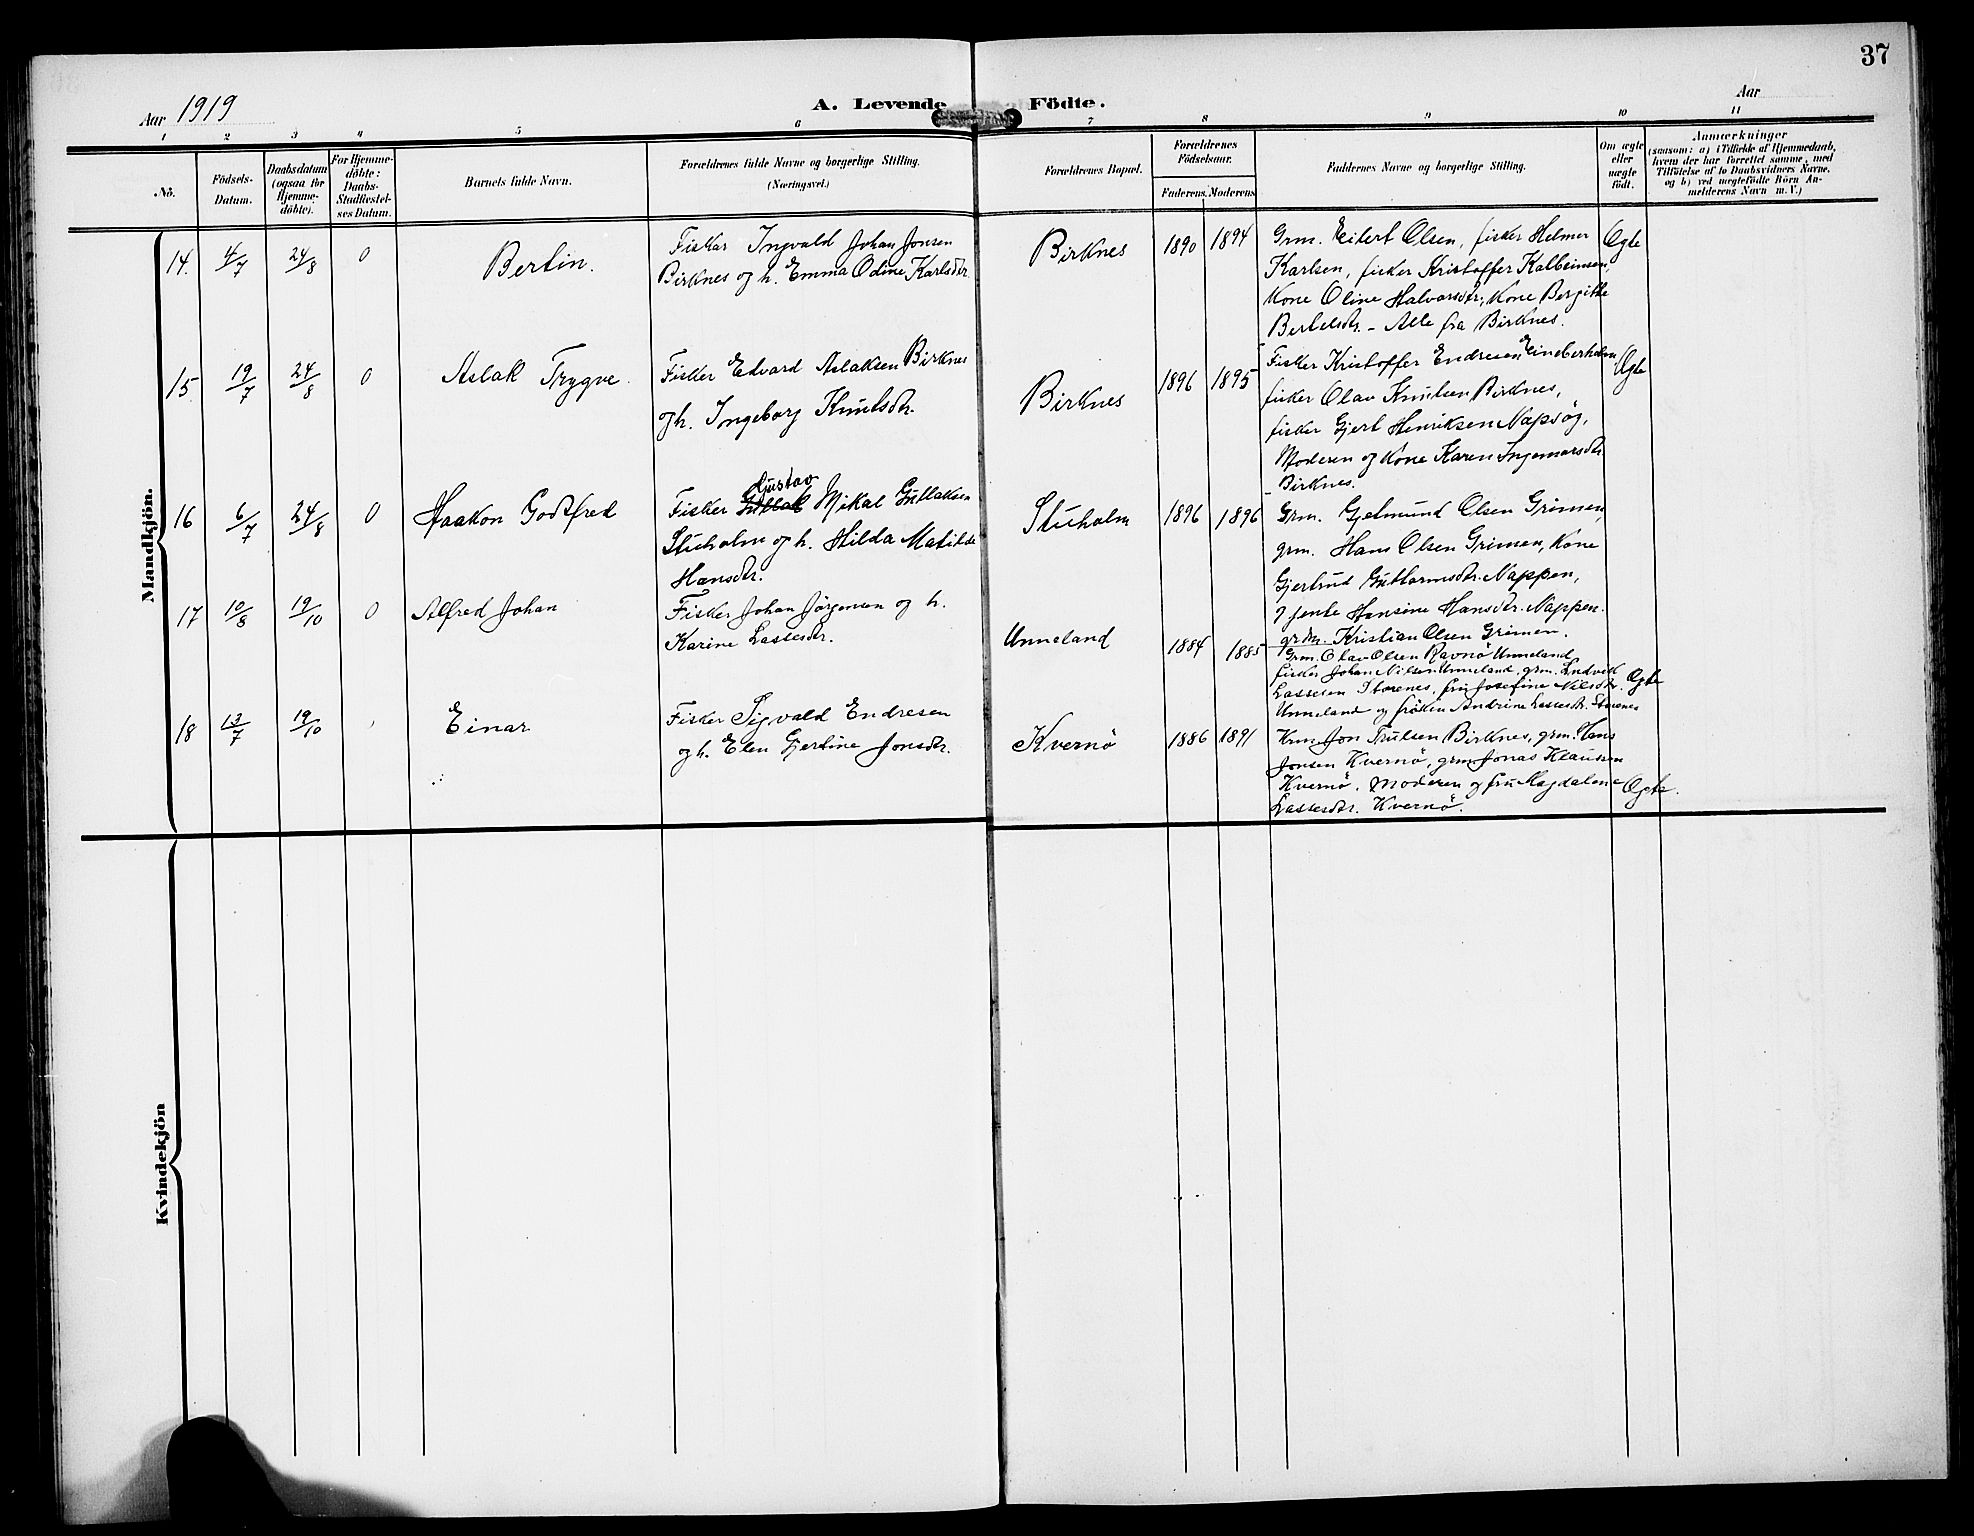 37
Aar 1919
A. Levende Födte.
Aar
1 2 3 4 5 6 7 8 9 10 11
No.
Födsels-Datum.
Daabsdatum (ogsaa for Hjemme-döbte).
For Hjemme-döbte: Daabs-Stadfæstel-ses Datum.
Barnets fulde Navn.
Forældrenes fulde Navne og borgerlige Stilling.
(Næringsvei.)
Forældrenes Bopæl.
Forældrenes Födselsaar.
Faderens. Moderens.
Faddernes Navne og borgerlige Stilling.
Om ægte eller uægte födt.
Anmærkninger
(saasom: a) i Tilfælde af Hjemmedaab,
hvem der har forrettet samme, med
Tilföielse af to Daabsvidners Navne.
og b) ved uægtefödte Börn An-
melderens Navn m. V.)
Mandkjön.
14. 4/7 24/8 0 Bertin.
Fisker Ingvald Johan Jonsen
Birknes og h. Emma Odine Karlsdtr.
Birknes 1890 1894
Grm. Eilert Olsen, fisker Helmer
Karlsen, fisker Kristoffer Kolbeinsen,
Kone Oline Halvorsdtr, Kone Bergitte
Bertelsdtr. - Alle fra Birknes.
Ægte
15 19/7 24/8 0 Aslak Trygve.
Fisker Edvard Aslaksen Birknes
og h. Ingeborg Knutsdtr.
Birknes 1896 1895
Fisker Kristoffer Endresen Eineberholm
fisker Olav Knutsen Birknes,
fisker Gjert Henriksen Napsög,
Moderen og Kone Karen Ingemarsdtr.
Birknes.
Ægte
16 6/7 24/8 0 Haakon Godtfred
Gustav
Fisker Gullak Mikal Gullaksen
Stuholm og h. Hilda Matilde
Hansdtr.
Stuholm 1896 1896
Grm. Gjetmund Olsen Grimen,
grm. Hans Olsen Grimen, Kone
Gjertrud Guttormsdtr. Nappen,
pjente Hansine Hansdtr. Nappen.
grdm. Kristian Olsen Grimen.
17 10/8 19/10 0 Alfred Johan
Fisker Johan Jørgensen og h.
Karine Lassesdtr.
Unneland 1884 1885
Grm. Olav Olsen Ravnö Unneland,
fisker Johan Nilsen Unneland, grm. Ludvik
Lassesen Storenes, fru Josefine Nilsdtr.
Unneland og fröken Andrine Lassesdtr. Storenes
Ægte
18 13/7 19/10 Einar
Fisker Sigvald Endresen
og h. Elen Gjertine Jonsdtr.
Kvernö 1886 1891
Krm. Jon Trulsen Birknes, grm. Hans
Jonsen Kvernö, grm. Jonas Klaussen
Kvernö. Moderen og fru Magdalene
Lassesdtr. Kvernö.
Ægte.
Kvindekjön